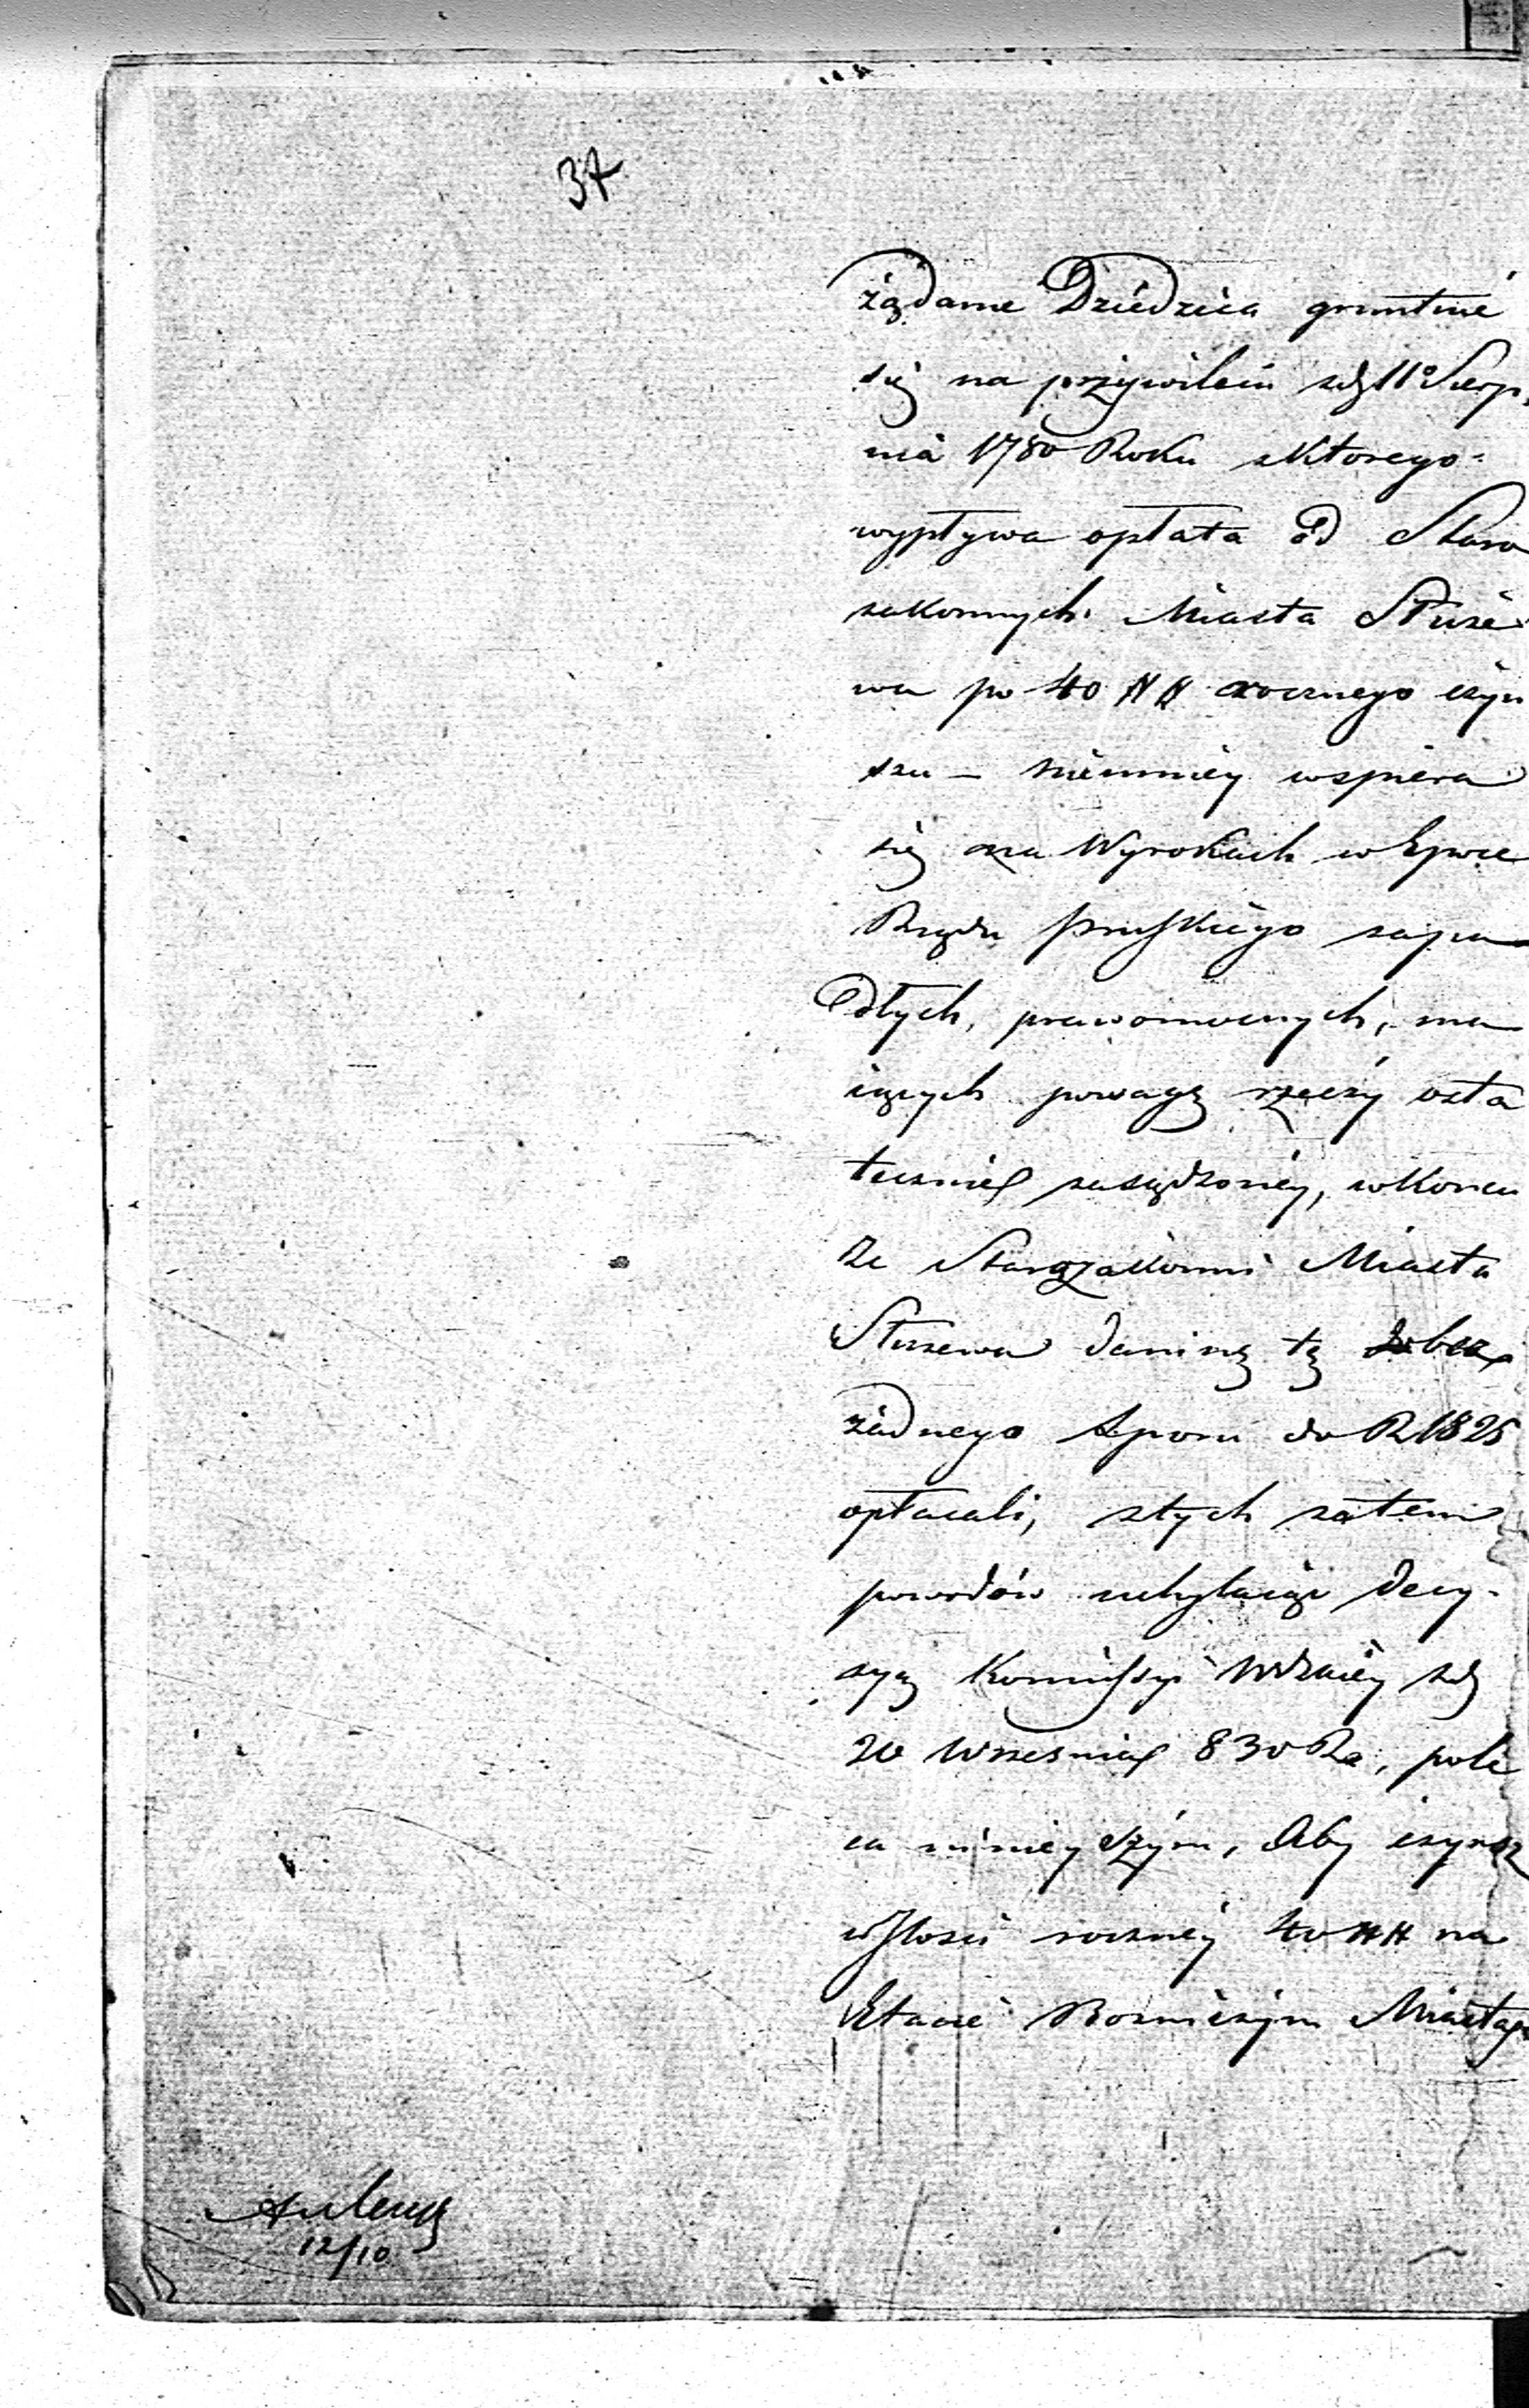 37
żądanie Dziedzica gruntuie
się na przywileiu zdź 11° Sierp,
nia 1780 Roku z którego
wypływa opłata od Staro
zakonnych Miasta Służe
wa po 40 ## rocznego czyn
szu – niemniey wspiera
się na Wyrokach w Epoce
Rządu Pruskiego zapa
dłych, prawomocnych, ma
iących powagę rzeczy osta
tecznie zasądzoney, w końcu
że Starozakonni Miasta
Służewa daninę tę bez
żadnego sporu do R 1825
opłacali, z tych zatem
powodów uchylaiąc decy-
zyę Kommissyi Wdzkiey zdź
20 Września 830 Ra, pole
ca ninieyszym, Aby czynsz
w Ilości roczney 40 ## na
Etacie Miasta
12/10